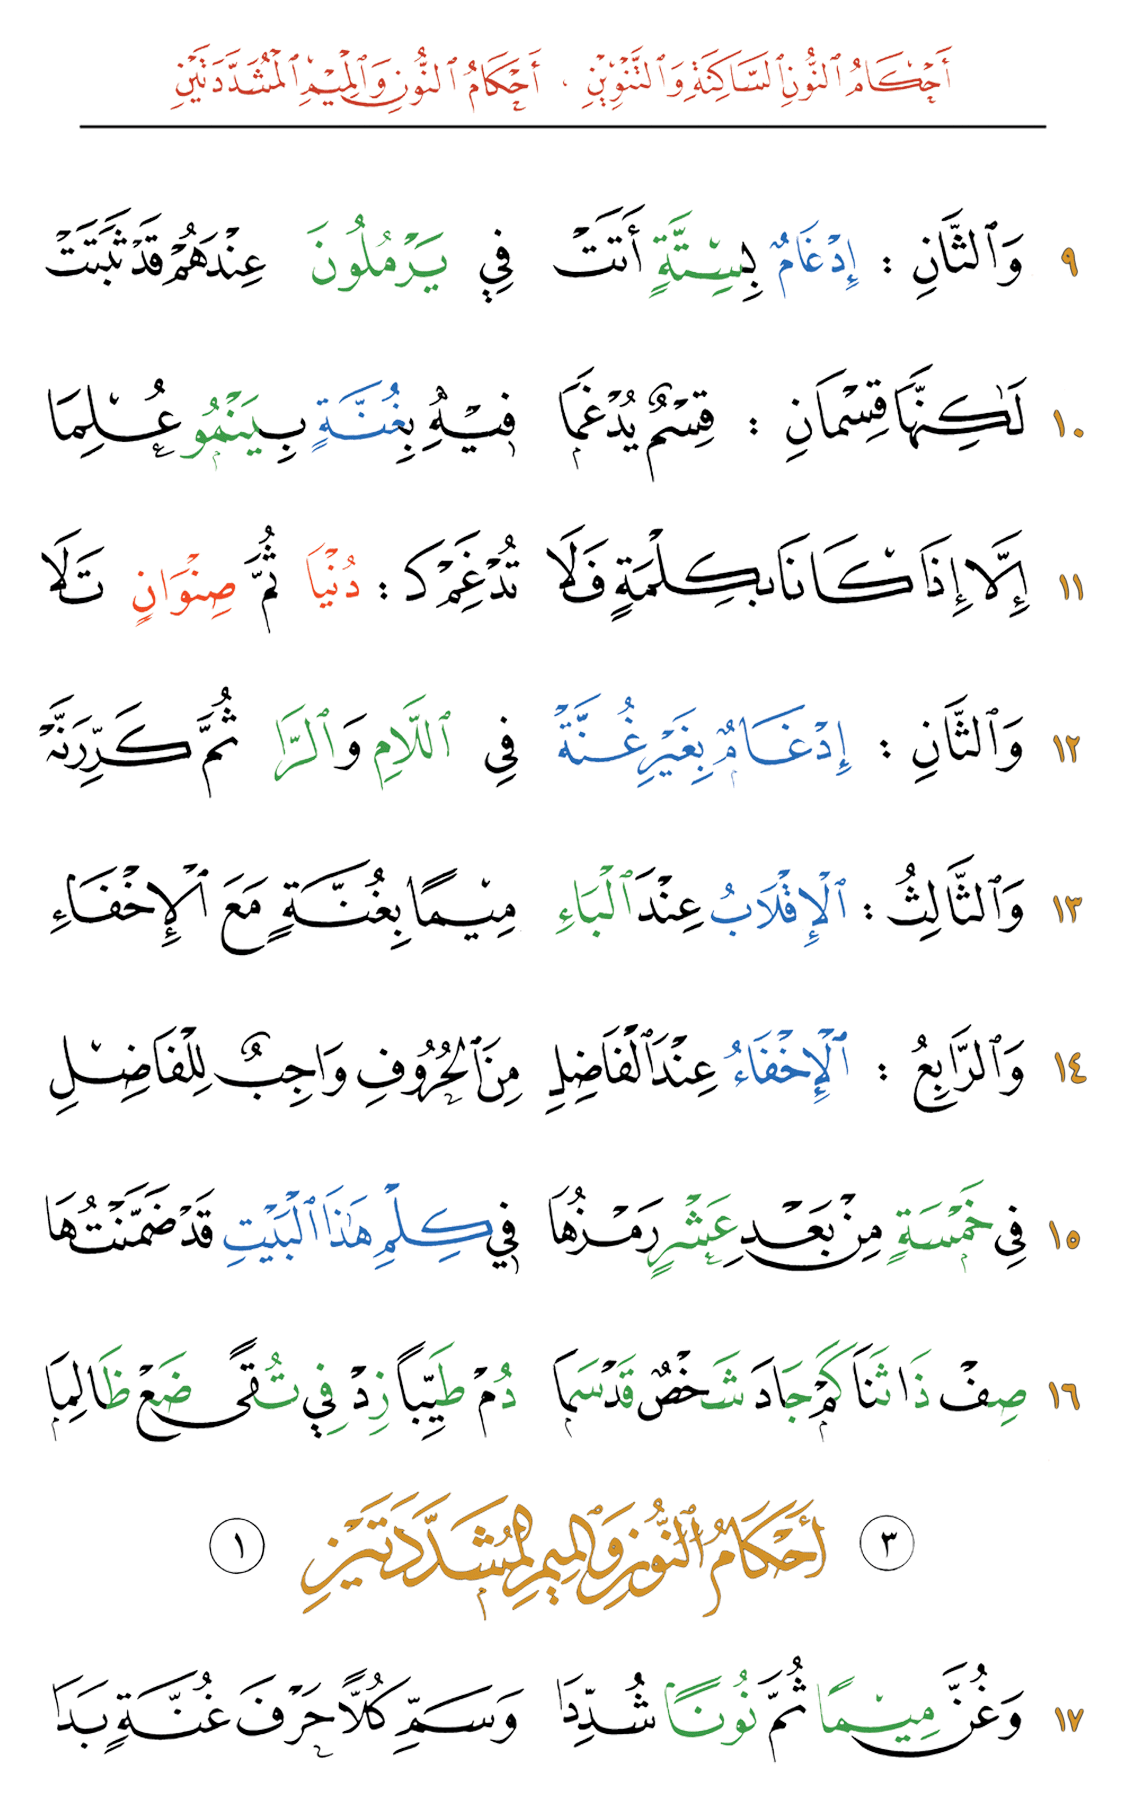 أَحْكَامُ ٱلنُّونِ ٱلسَّاكِنَةِ وَٱلتَّنْوِينِ ، أَحْكَامُ ٱلنُّونِ وَٱلْمِيمِ ٱلْمُشَدَّدَتَيْنِ
٩ وَٱلثَّانِ : إِدْغَامٌ بِسِتَّةٍ أَتَتْ فِي يَرْمُلُونَ عِنْدَهُمْ قَدْ ثَبَتَتْ
١٠ لَٰكِنَّهَا قِسْمَانِ : قِسْمٌ يُدْغَمَا فِيهِ بِغُنَّةٍ بِيَنْمُو عُلِمَا
١١ إِلَّا إِذَا كَانَا بِكِلْمَةٍ فَلَا تُدْغِمْ كَ : دُنْيَا ثُمَّ صِنْوَانٍ تَلَا
١٢ وَٱلثَّانِ : إِدْغَامٌ بِغَيْرِ غُنَّةْ فِي ٱللَّامِ وَٱلرَّا ثُمَّ كَرِّرَنَّهْ
١٣ وَٱلثَّالِثُ : ٱلْإِقْلَابُ عِنْدَ ٱلْبَاءِ مِيمًا بِغُنَّةٍ مَعَ ٱلْإِخْفَاءِ
١٤ وَٱلرَّابِعُ : ٱلْإِخْفَاءُ عِنْدَ ٱلْفَاضِلِ مِنَ ٱلْحُرُوفِ وَاجِبٌ لِلْفَاضِلِ
١٥ فِي خَمْسَةٍ مِنْ بَعْدِ عَشْرٍ رَمْزُهَا فِي كِلْمِ هَٰذَا ٱلْبَيْتِ قَدْ ضَمَّنْتُهَا
١٦ صِفْ ذَا ثَنَا كَمْ جَادَ شَخْصٌ قَدْ سَمَا دُمْ طَيِّبًا زِدْ فِي تُقًى ضَعْ ظَالِمَا
٣ أَحْكَامُ ٱلنُّونِ وَٱلْمِيمِ ٱلْمُشَدَّدَتَيْنِ ١
١٧ وَغُنَّ مِيمًا ثُمَّ نُونًا شُدِّدَا وَسَمِّ كُلًّا حَرْفَ غُنَّةٍ بَدَا